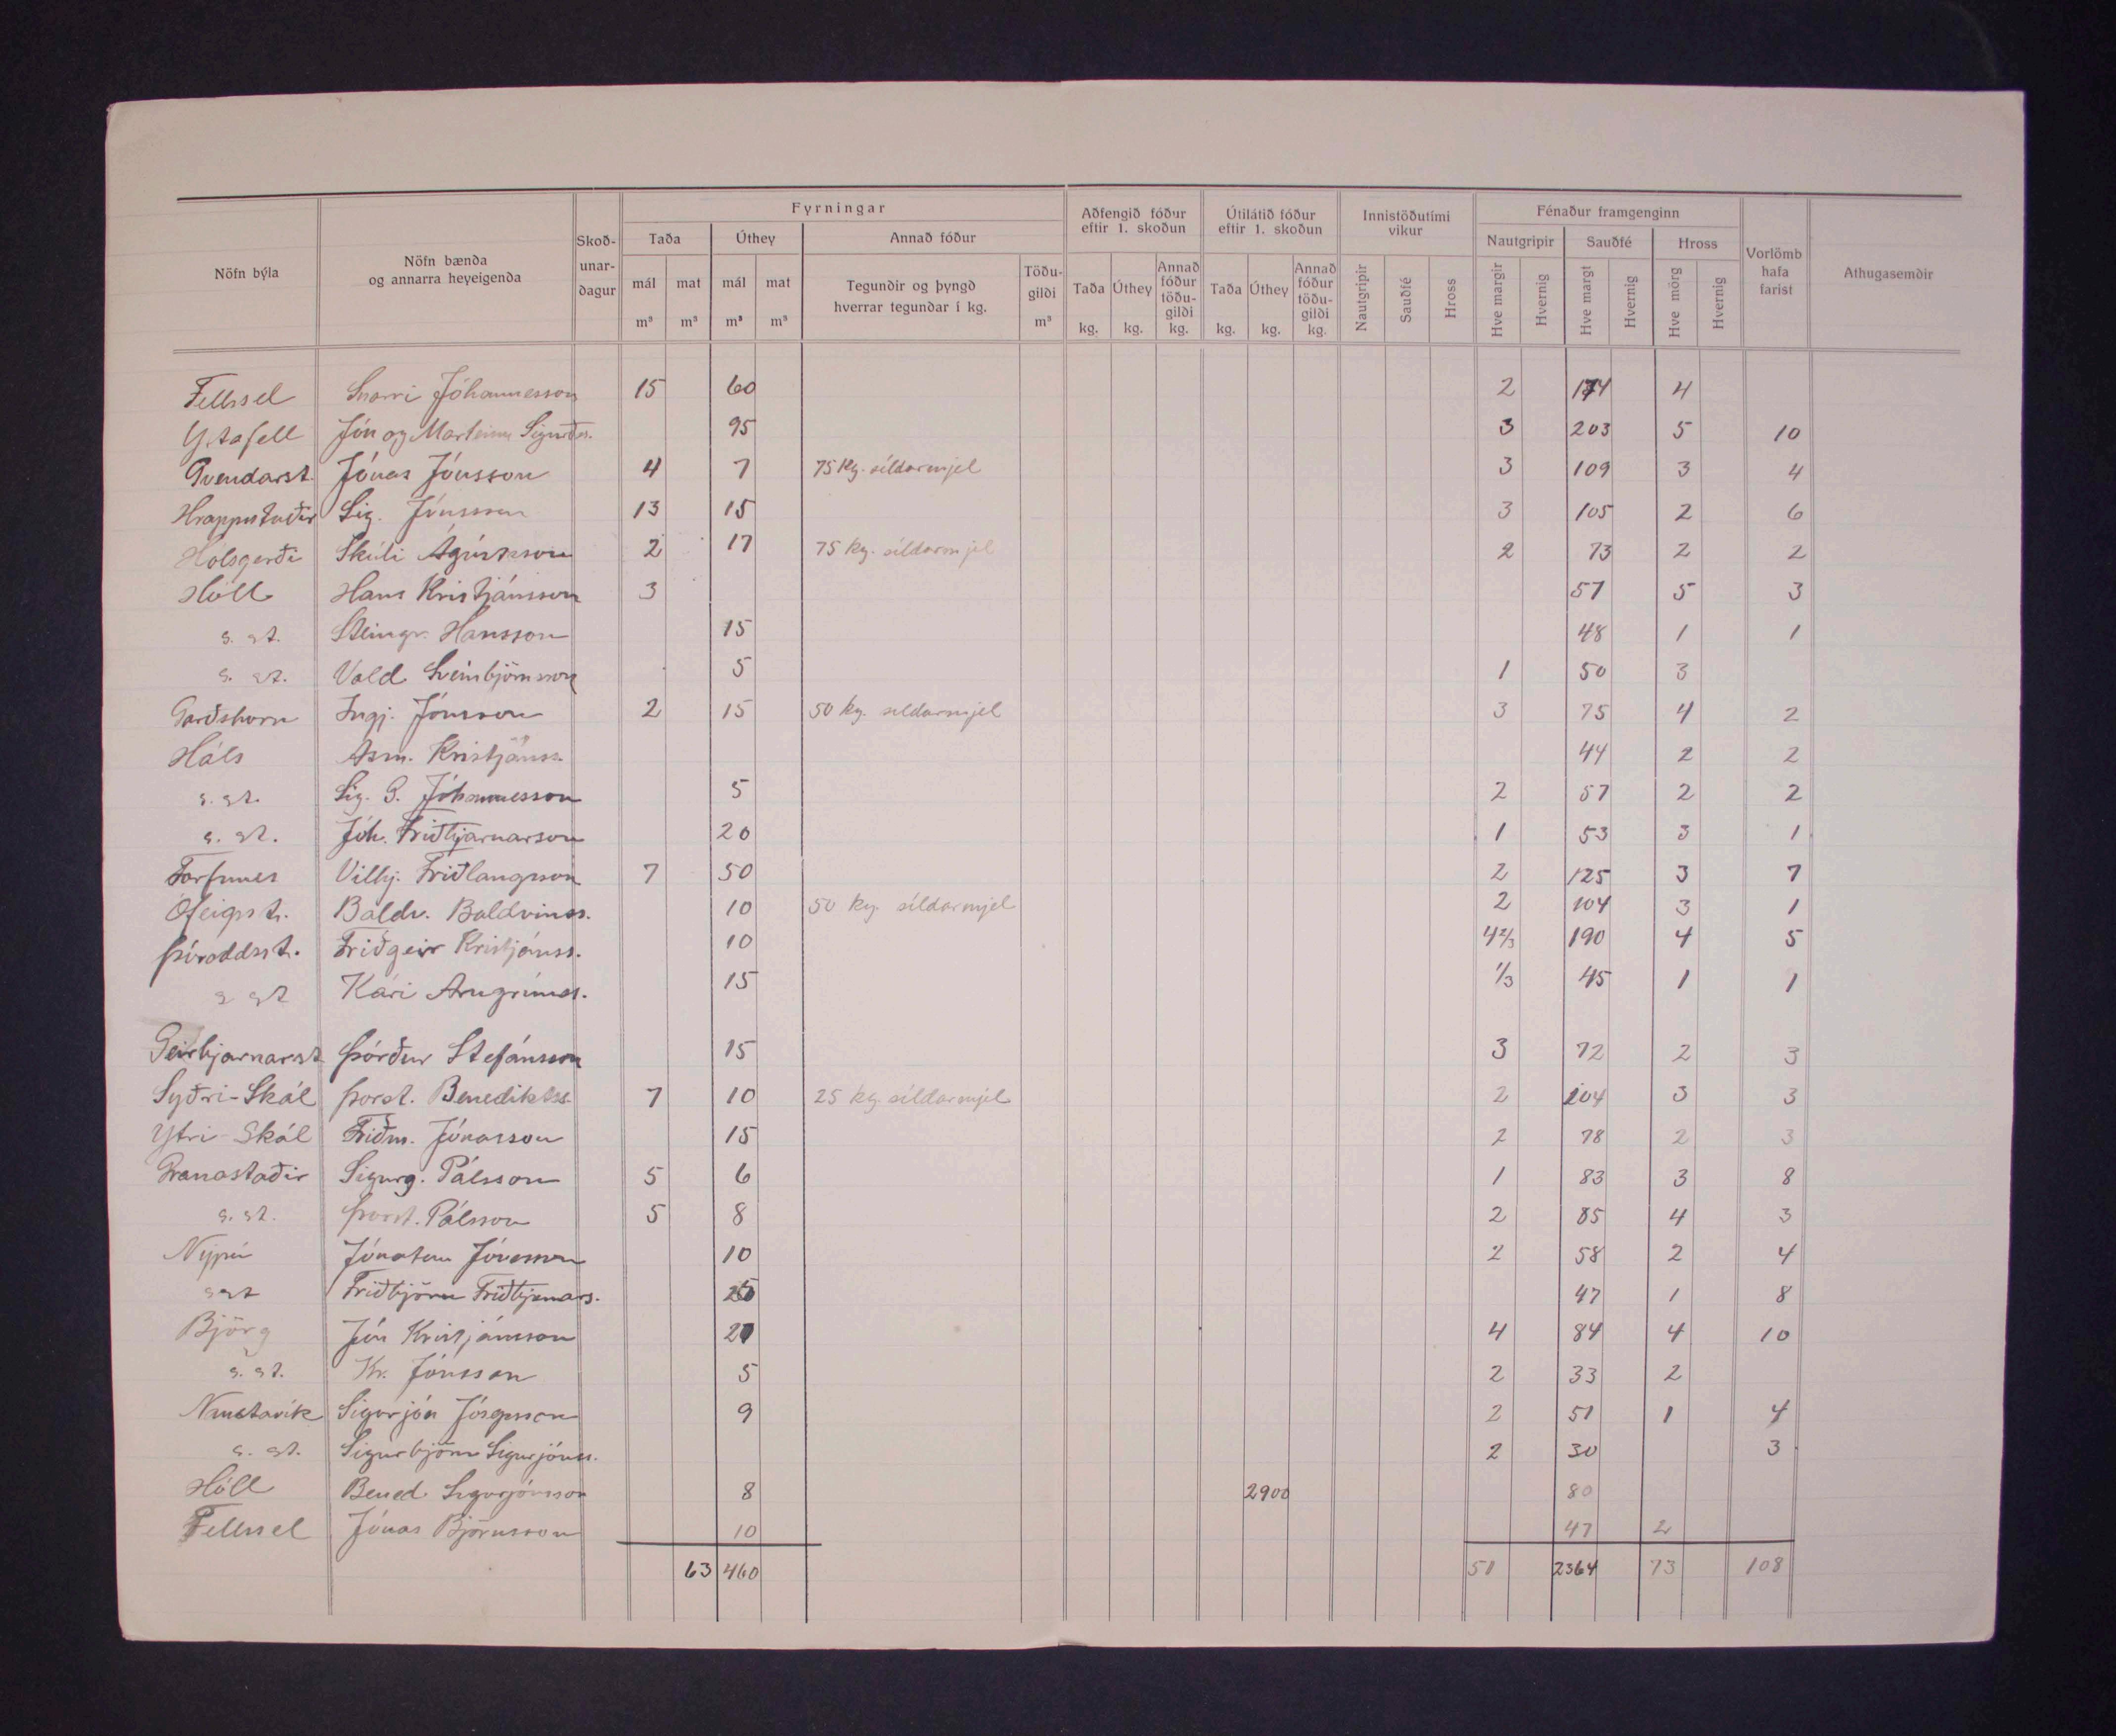 Fyrningar
Aðfengið fóður eftir 1. skoðun
Útilátið fóður eftir 1. skoðun
Innistöðutími vikur
Fénaður framgenginn
Nöfn býla
Nöfn bænda og annarra heyeigenda
Skoð-unar-dagur
Taða
Úthey
Annað fóður
Nautgripir
Sauðfé
Hross
Vorlömb hafa farist
Athugasemdir
mál m³
mat m³
mál m³
mat m³
Tegundir og þyngd hverrar tegundar í kg.
Töðu-gildi m³
Taða kg.
Úthey kg.
Annað fóður töðu-gildi kg.
Taða kg.
Úthey kg.
Annað fóður töðu-gildi kg.
Nautgripir
Sauðfé
Hross
Hve margir
Hvernig
Hve margt
Hvernig
Hve mörg
Hvernig
Fellssel Snorri Jóhannesson 15 60 2 174 4
Ystafell Jón og Marteinn Sigurðs. 95 3 203 5 10
Gvendarst. Jónas Jónsson 4 7 75 kg. síldarmjel 3 109 3 4
Hrappstaðir Sig. Jónsson 13 15 3 105 2 6
Holsgerði Skúli Ágústsson 2 17 75 kg. síldarmjel 2 73 2 2
Hóll Hans Kristjánsson 3 57 5 3
s. st. Steingr. Hansson 15 48 1 1
s. st. Vald Sveinbjörnsson 5 1 50 3
Garðshorn Ingj. Jónsson 2 15 50 kg. síldarmjel 3 75 4 2
Háls Asm. Kristjánss. 44 2 2
s. st. Sig. G. Jóhannesson 5 2 57 2 2
s. st. Jóh. Friðbjarnarson 20 1 53 3 1
Torfunes Vilhj. Friðlaugsson 7 50 2 125 3 7
Ófeigsst. Baldv. Baldvinss. 10 50 kg. síldarmjel 2 104 3 1
Þóroddsst. Friðgeir Kristjánss. 10 4 2/3 190 4 5
s st Kári Arngríms. 15 1/3 45 1 1
Geirbjarnarst Þórður Stefánsson 15 3 72 2 3
Syðri-Skál Þorst. Benediktss. 7 10 25 kg. síldarmjel 2 104 3 3
Ytri-Skál Friðm. Jónasson 15 2 78 2 3
Granastaðir Sigurg. Pálsson 5 6 1 83 3 8
s. st. Þorst. Pálsson 5 8 2 85 4 3
Nýpá Jónatan Jónasson 10 2 58 2 4
s st Friðbjörn Friðbjarnars. 47 1 8
Björg Jón Kristjánsson 27 4 84 4 10
s. st. Kr. Jónsson 5 2 33 2
Naustavík Sigurjón 9 2 51 1 4
s. st. Sigurbjörn Sigurjónss. 2 30 3
Hóll Bened. Sigurjónsson 8 2900 80
Fellssel Jónas Björnsson 10 47 2
63 460 51 2364 73 108